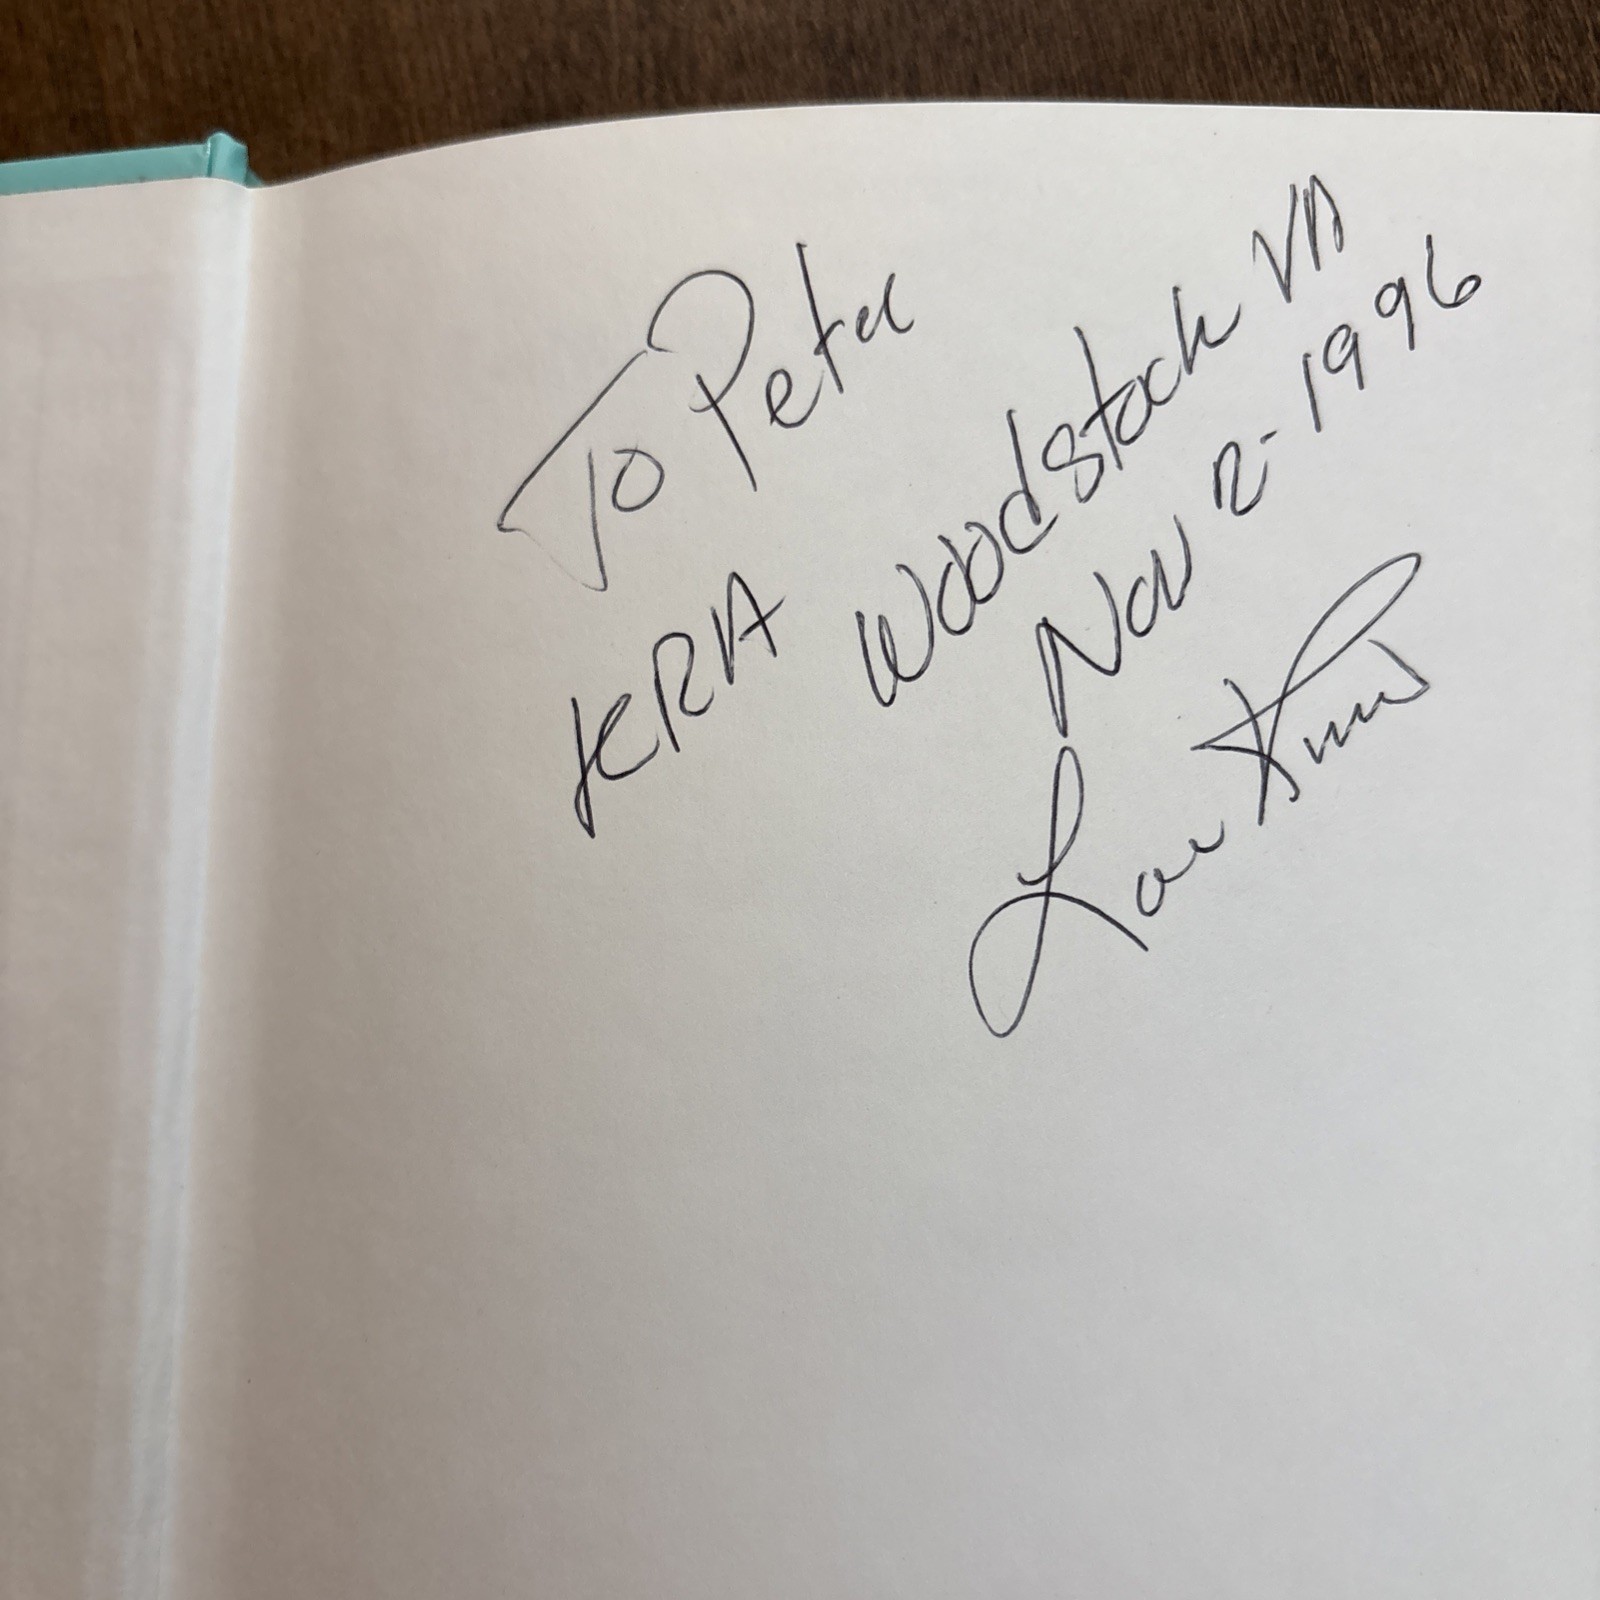 To Peter
KRA Woodstock VA
Nov 2-1996